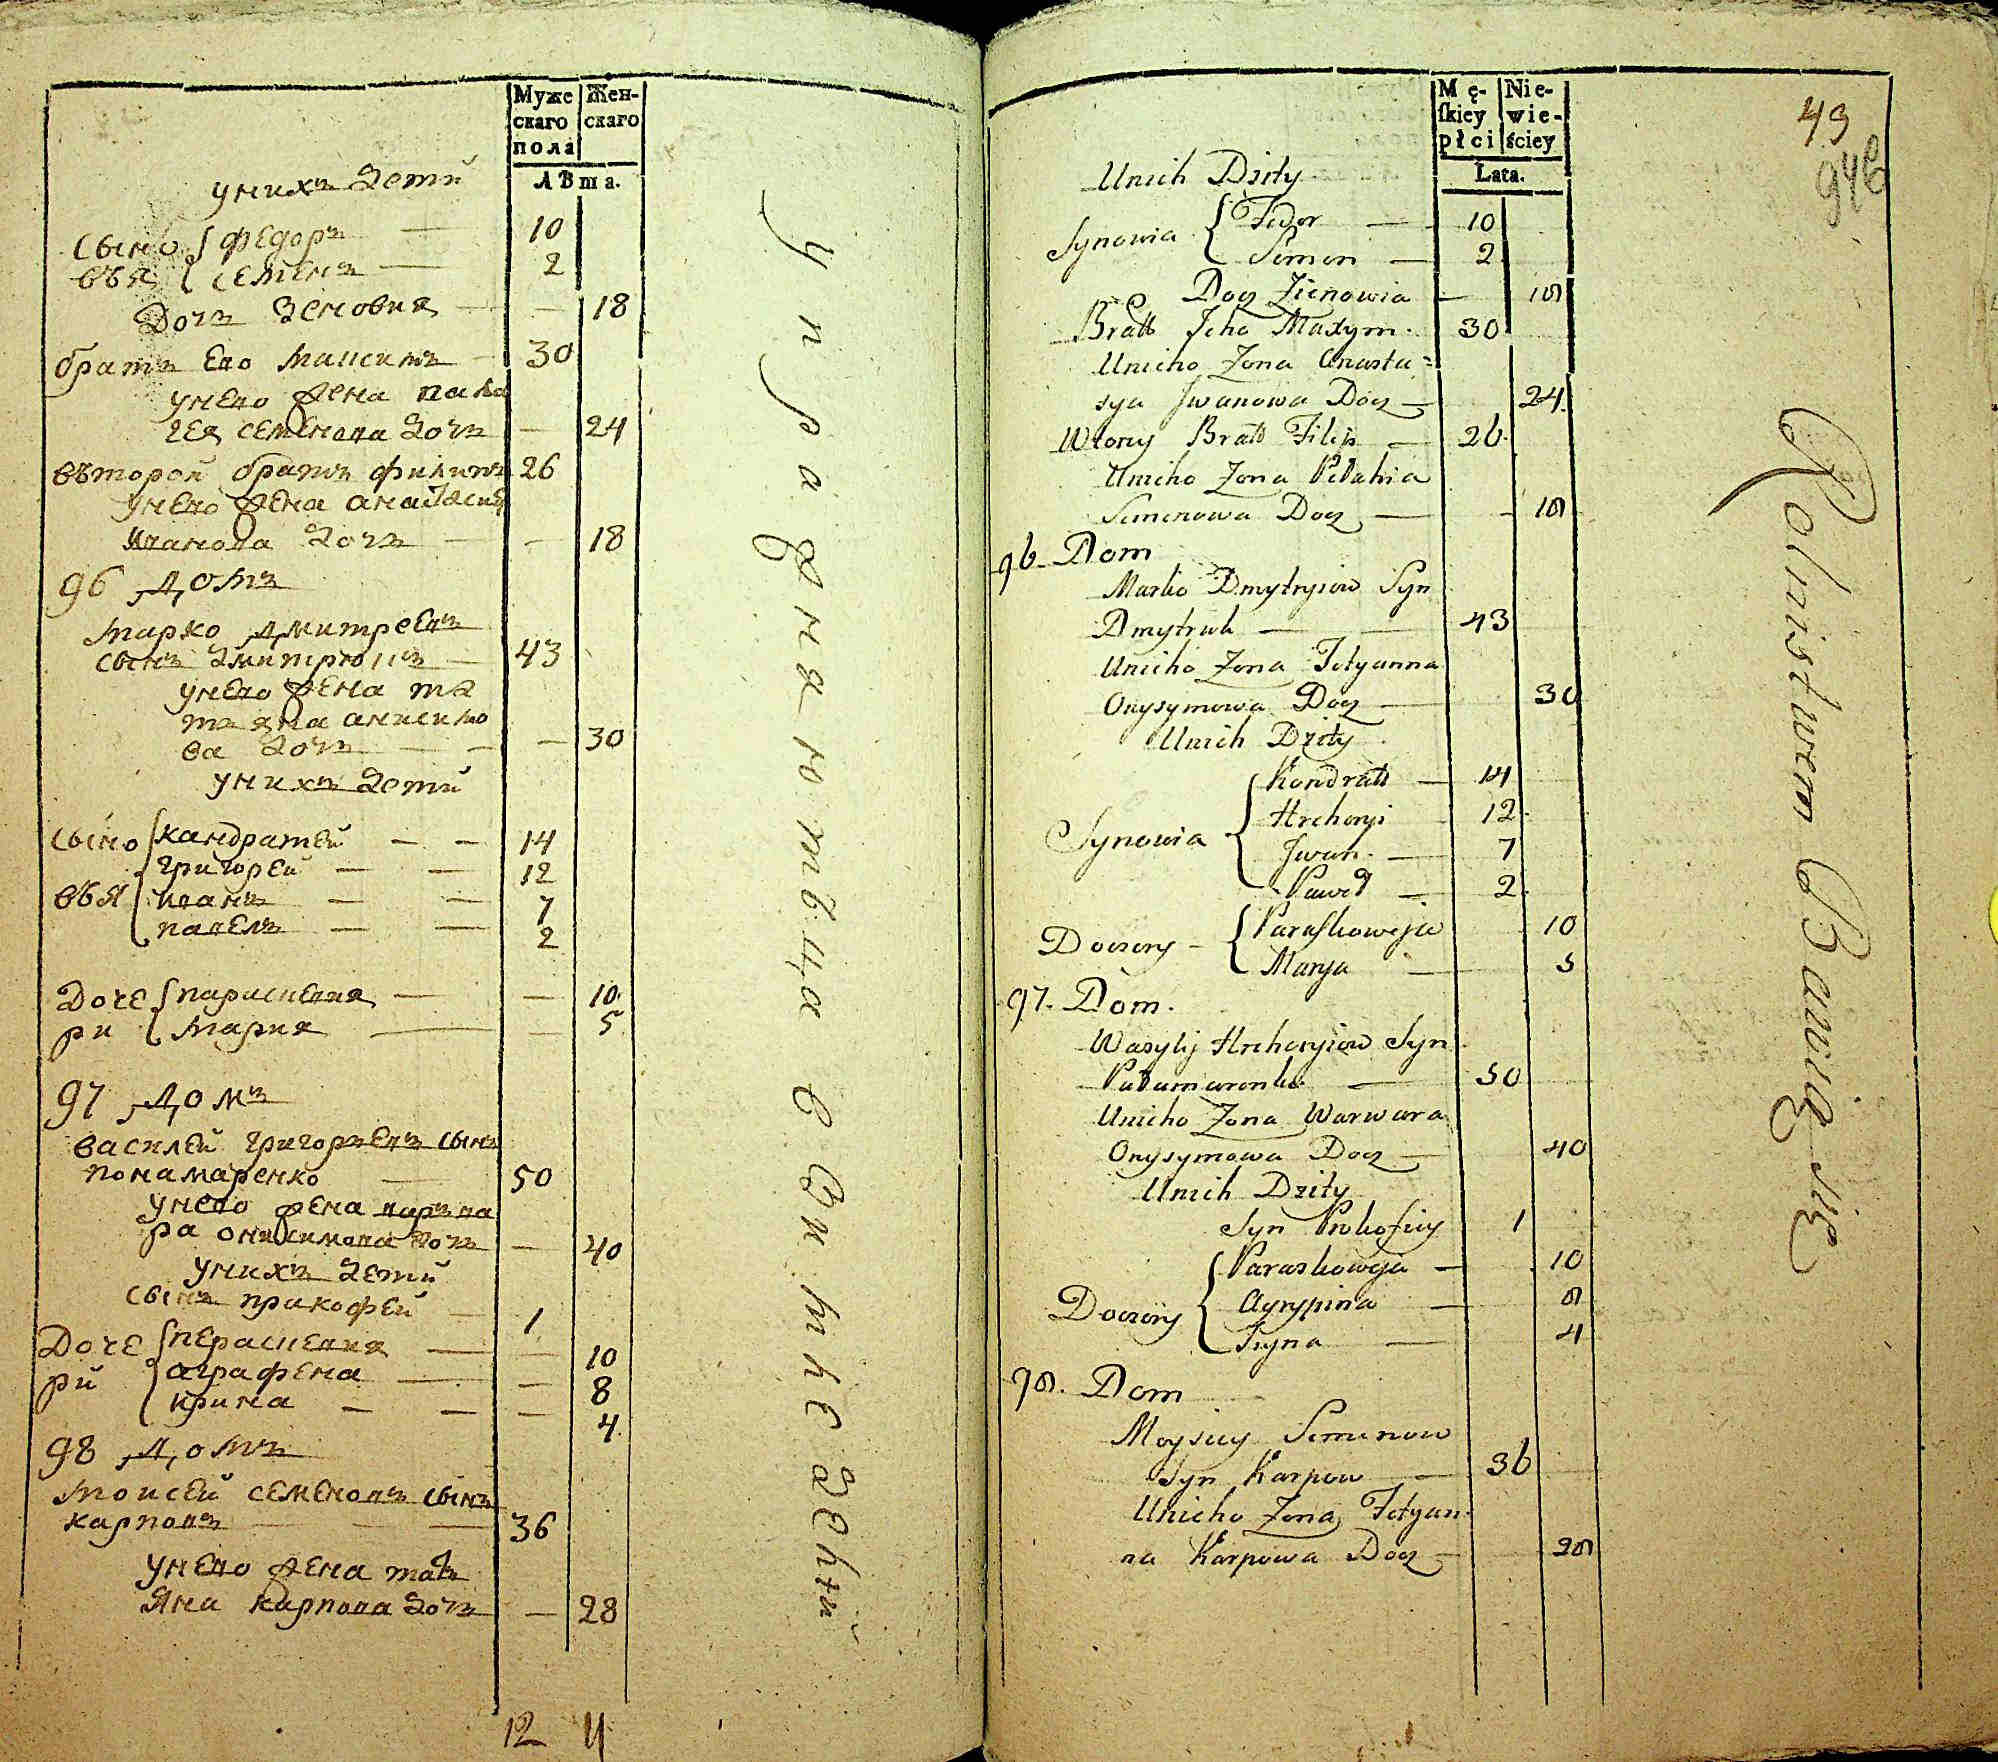 Муже скаго пола
Жен- скаго
лѣта.
у нихъ детй
сыно вья { федоръ — 10
семенъ — 2
дочь зеновия — — 18
братъ ево максимъ — 30
у нево жена пала
гея семенова дочь — 24
въторой братъ филипъ 26
у нево жена анастасия
иванова дочь — — 18
96 домъ
марко дмитревъ
сынъ дмитрюкъ — 43
у нево жена та
тьяна анисимо
ва дочь — — — 30
у нихъ детй
сыно вья { кандратей — — 14
григорей — — 12
иванъ — — 7
павелъ — — 2
доче ри { парасковия — — 10
мария — — 5
97 домъ
василей григорьевъ сынъ
понамаренко — 50
у нево жена варва
ра онисимова дочь — 40
у нихъ детй
сынъ пракофей — 1
доче рй { перасковия — — 10
аграфена — — 8
ирина — — — 4
98 домъ
моисей семеновъ сынъ
карповъ — — — 36
у нево жена тать
яна карпова дочь — 28
12 11
упражняютъца в
Mę- skiey płci
Nie- wie- ściey
Lata.
49
94б
Unich Dzity
Synowia { Fedor — 10
Semen — 2
Docz Zienowia — 18
Bratt Jeho Maxym. 30
Unieho Zona Anasta=
sya Jwanowa Docz — 24.
Wtory Bratt Filip — 26.
Unieho Zona Pelahia
Semenowa Docz — - 18
96. Dom
Marko Dmytryiow Syn
Dmytruk — — 43
Unieho Zona Tetyanna
Onysymowa Docz — 30
Unich Dzity
Synowia { Kondratt — 14
Hrehoryi - 12.
Jwan. — 7
Paweł — 2.
Doczery - { Paraskoweja 10
Marya — 5
97. Dom.
Wasylij Hrehoryiow Syn
Pałamarenko — 50
Unieho Zona Warwara
Onysymowa Docz — 40
Unich Dzity
Syn Prokofiey 1
Doczery { Paraskoweja — 10
Agrypina — 8
Iryna — 4
98. Dom
Moysiey Semenow
Syn Karpow — 36
Unieho Zona Tetyan-
na Karpowa Docz — 28
Rolnistwem Bawią się